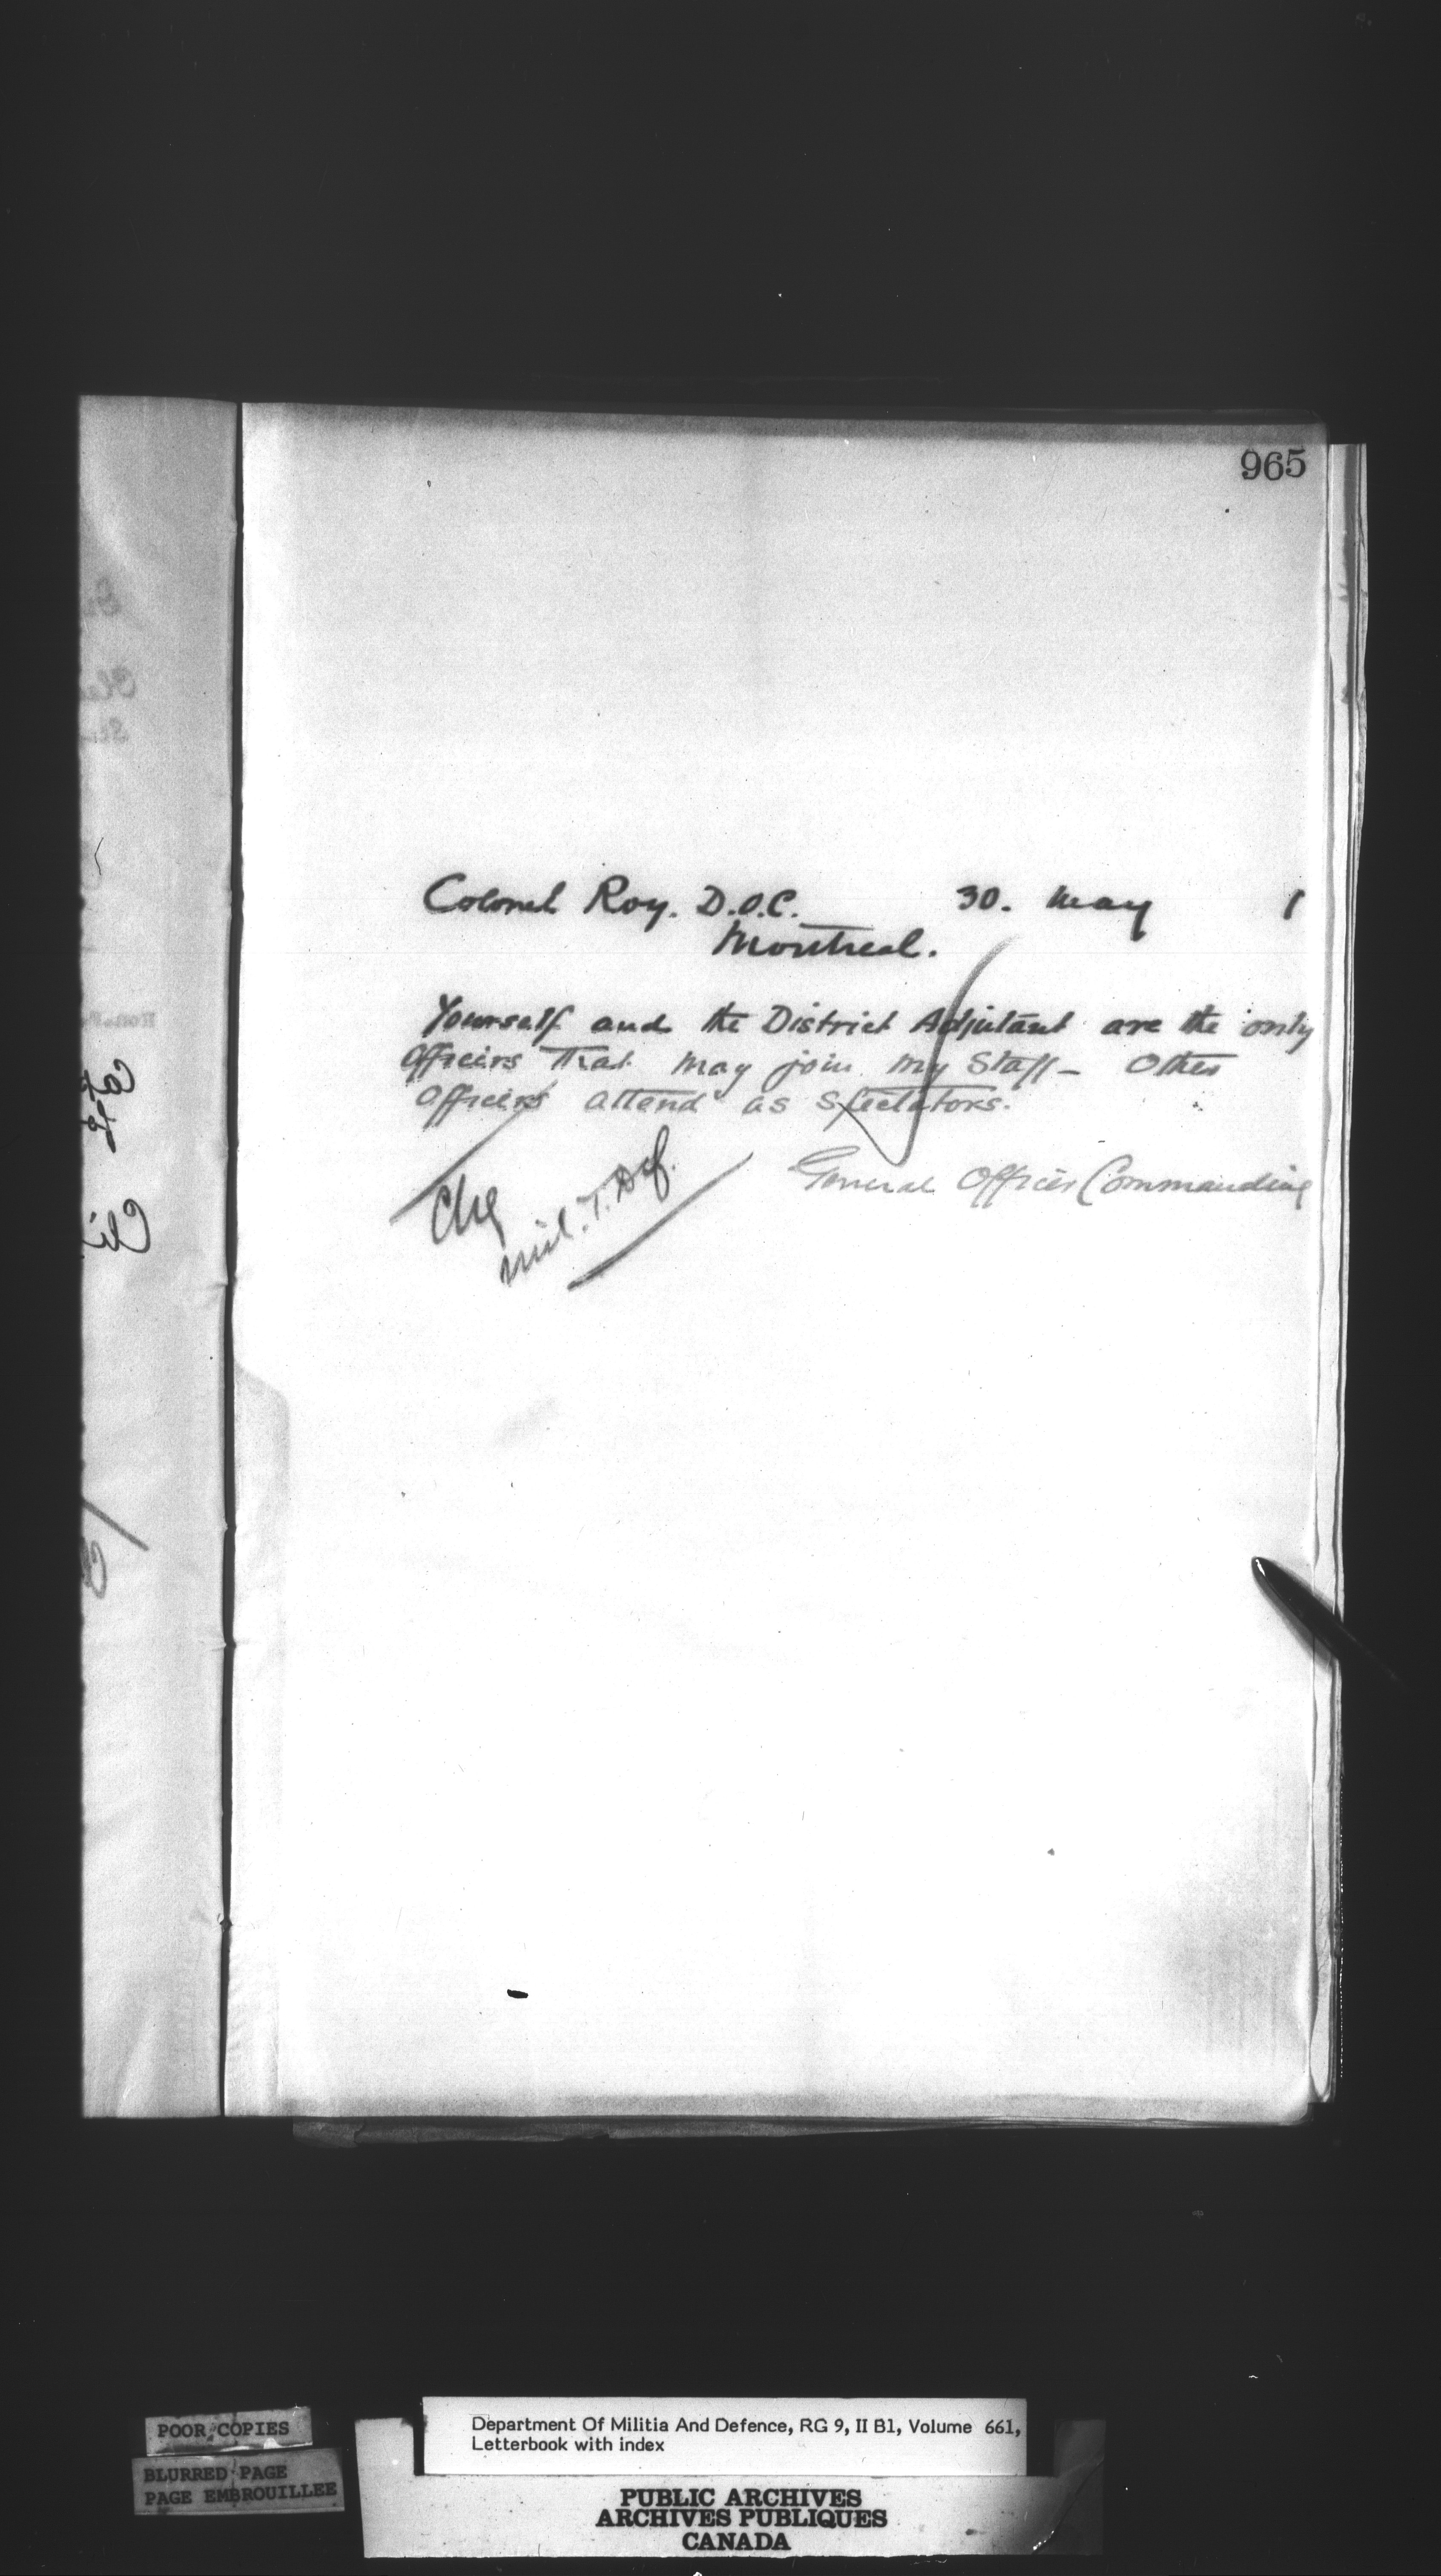 965
Colonel Roy. D.O.C. 30. May 1
Montreal.
Yourself and the District Adjutant are the only
Officers that may join my Staff - Other
Officers attend as Spectators.
General Officer Commanding
Chg
Mil. T. Def.
POOR COPIES
BLURRED PAGE
PAGE EMBROUILLEE
Department Of Militia And Defence, RG 9, II B1, Volume 661,
Letterbook with index
PUBLIC ARCHIVES
ARCHIVES PUBLIQUES
CANADA